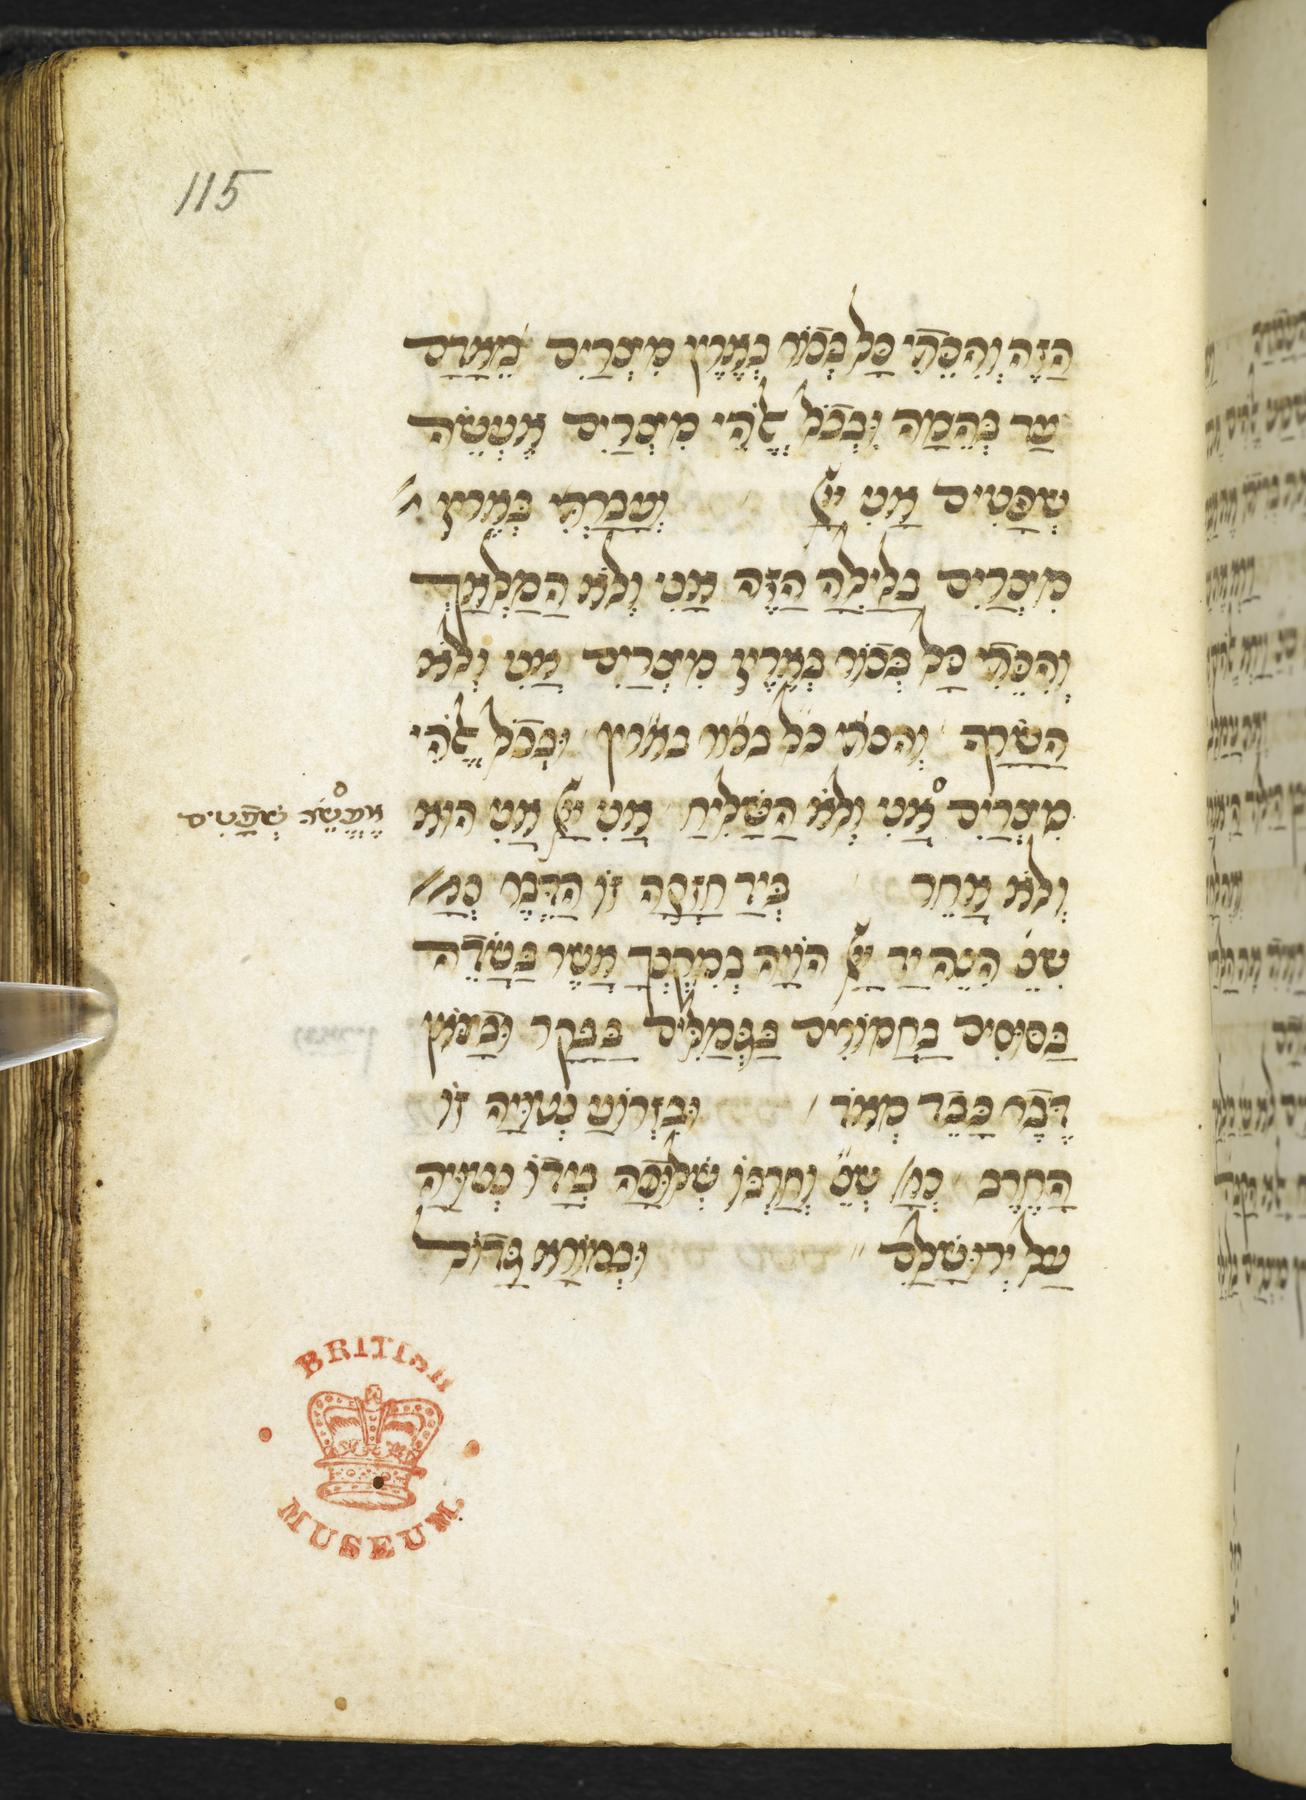 115
הַזֶה וְהִכֵּתִי כָּל בְּכוֹר בְּאֶרֶץ מִצְרַיִם מֵאָדָם
עַד בְּהֵמָה וּבְכָל אֱלֹהֵי מִצְרַיִם אֶעְשֶׂה
שְׁפָטִים אֲנִי וְעָבַרְתִּי בְּאֶרֶץ
מִצְרַיִם בַּלַּיְלָה הַזֶּה אֲנִי וְלֹא הַמַּלְאָךְ
וְהִכֵּתִי כָל בְּכוֹר בְּאֶרֶץ מִצְרַיִם אֲנִי וְלֹא
הַשָּׂרָף וְהכתי כל בכור בארץ וּבְכָל אֱלֹהֵי
מִצְרַיִם אֲנִי וְלֹא הַשָּׁלִיחַ אֲנִי אֲנִי הוּא
אֶעֱשֶׂה שְׁפָטִים
וְלֹא אַחֵר בְּיָד חֲזָקָה זוֹ הַדֶּבֶר
הִנֵּה יַד הוֹיָה בְּמִקְנְךָ אֲשֶׁר בַּשָּׂדֶה
בַּסּוּסִים בַּחֲמוֹרִים בַּגְּמַלִּים בַּבָּקָר וּבַצֹּאן
דֶּבֶר כָּבֵד מְאֹד וּבִזְרוֹעַ נְטוּיָה זוֹ
הַחֶרֶב וְחַרְבּוֹ שְׁלוּפָה בְּיָדוֹ נְטוּיָה
עַל יְרוּשָׁלַםִ וּבְמוֹרָא גָּדוֹל
BRITISH
MUSEUM